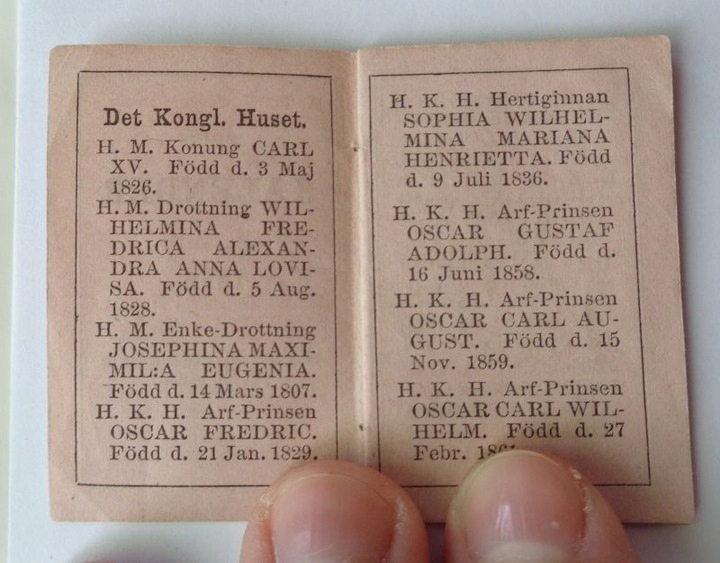 Det Kongl. Huset.
H. M. Konung CARL
XV. Född d. 3 Maj
1826.
H. M. Drottning WIL-
HELMINA FRE-
DRICA ALEXAN-
DRA ANNA LOVI-
SA. Född d. 5 Aug.
1828.
H. M. Enke-Drottning
JOSEPHINA MAXI-
MIL:A EUGENIA.
Född d. 14 Mars 1807.
H. K. H. Arf-Prinsen
OSCAR FREDRIC.
Född d. 21 Jan. 1829.
H. K. H. Hertiginnan
SOPHIA WILHEL-
MINA MARIANA
HENRIETTA. Född
d. 9 Juli 1836.
H. K. H. Arf-Prinsen
OSCAR GUSTAF
ADOLPH. Född d.
16 Juni 1858.
H. K. H. Arf-Prinsen
OSCAR CARL AU-
GUST. Född d. 15
Nov. 1859.
H. K. H. Arf-Prinsen
OSCAR CARL WIL-
HELM. Född d. 27
Febr.